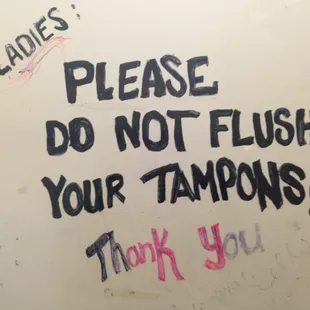 LADIES:
PLEASE
DO NOT FLUSH
YOUR TAMPONS!
Thank You